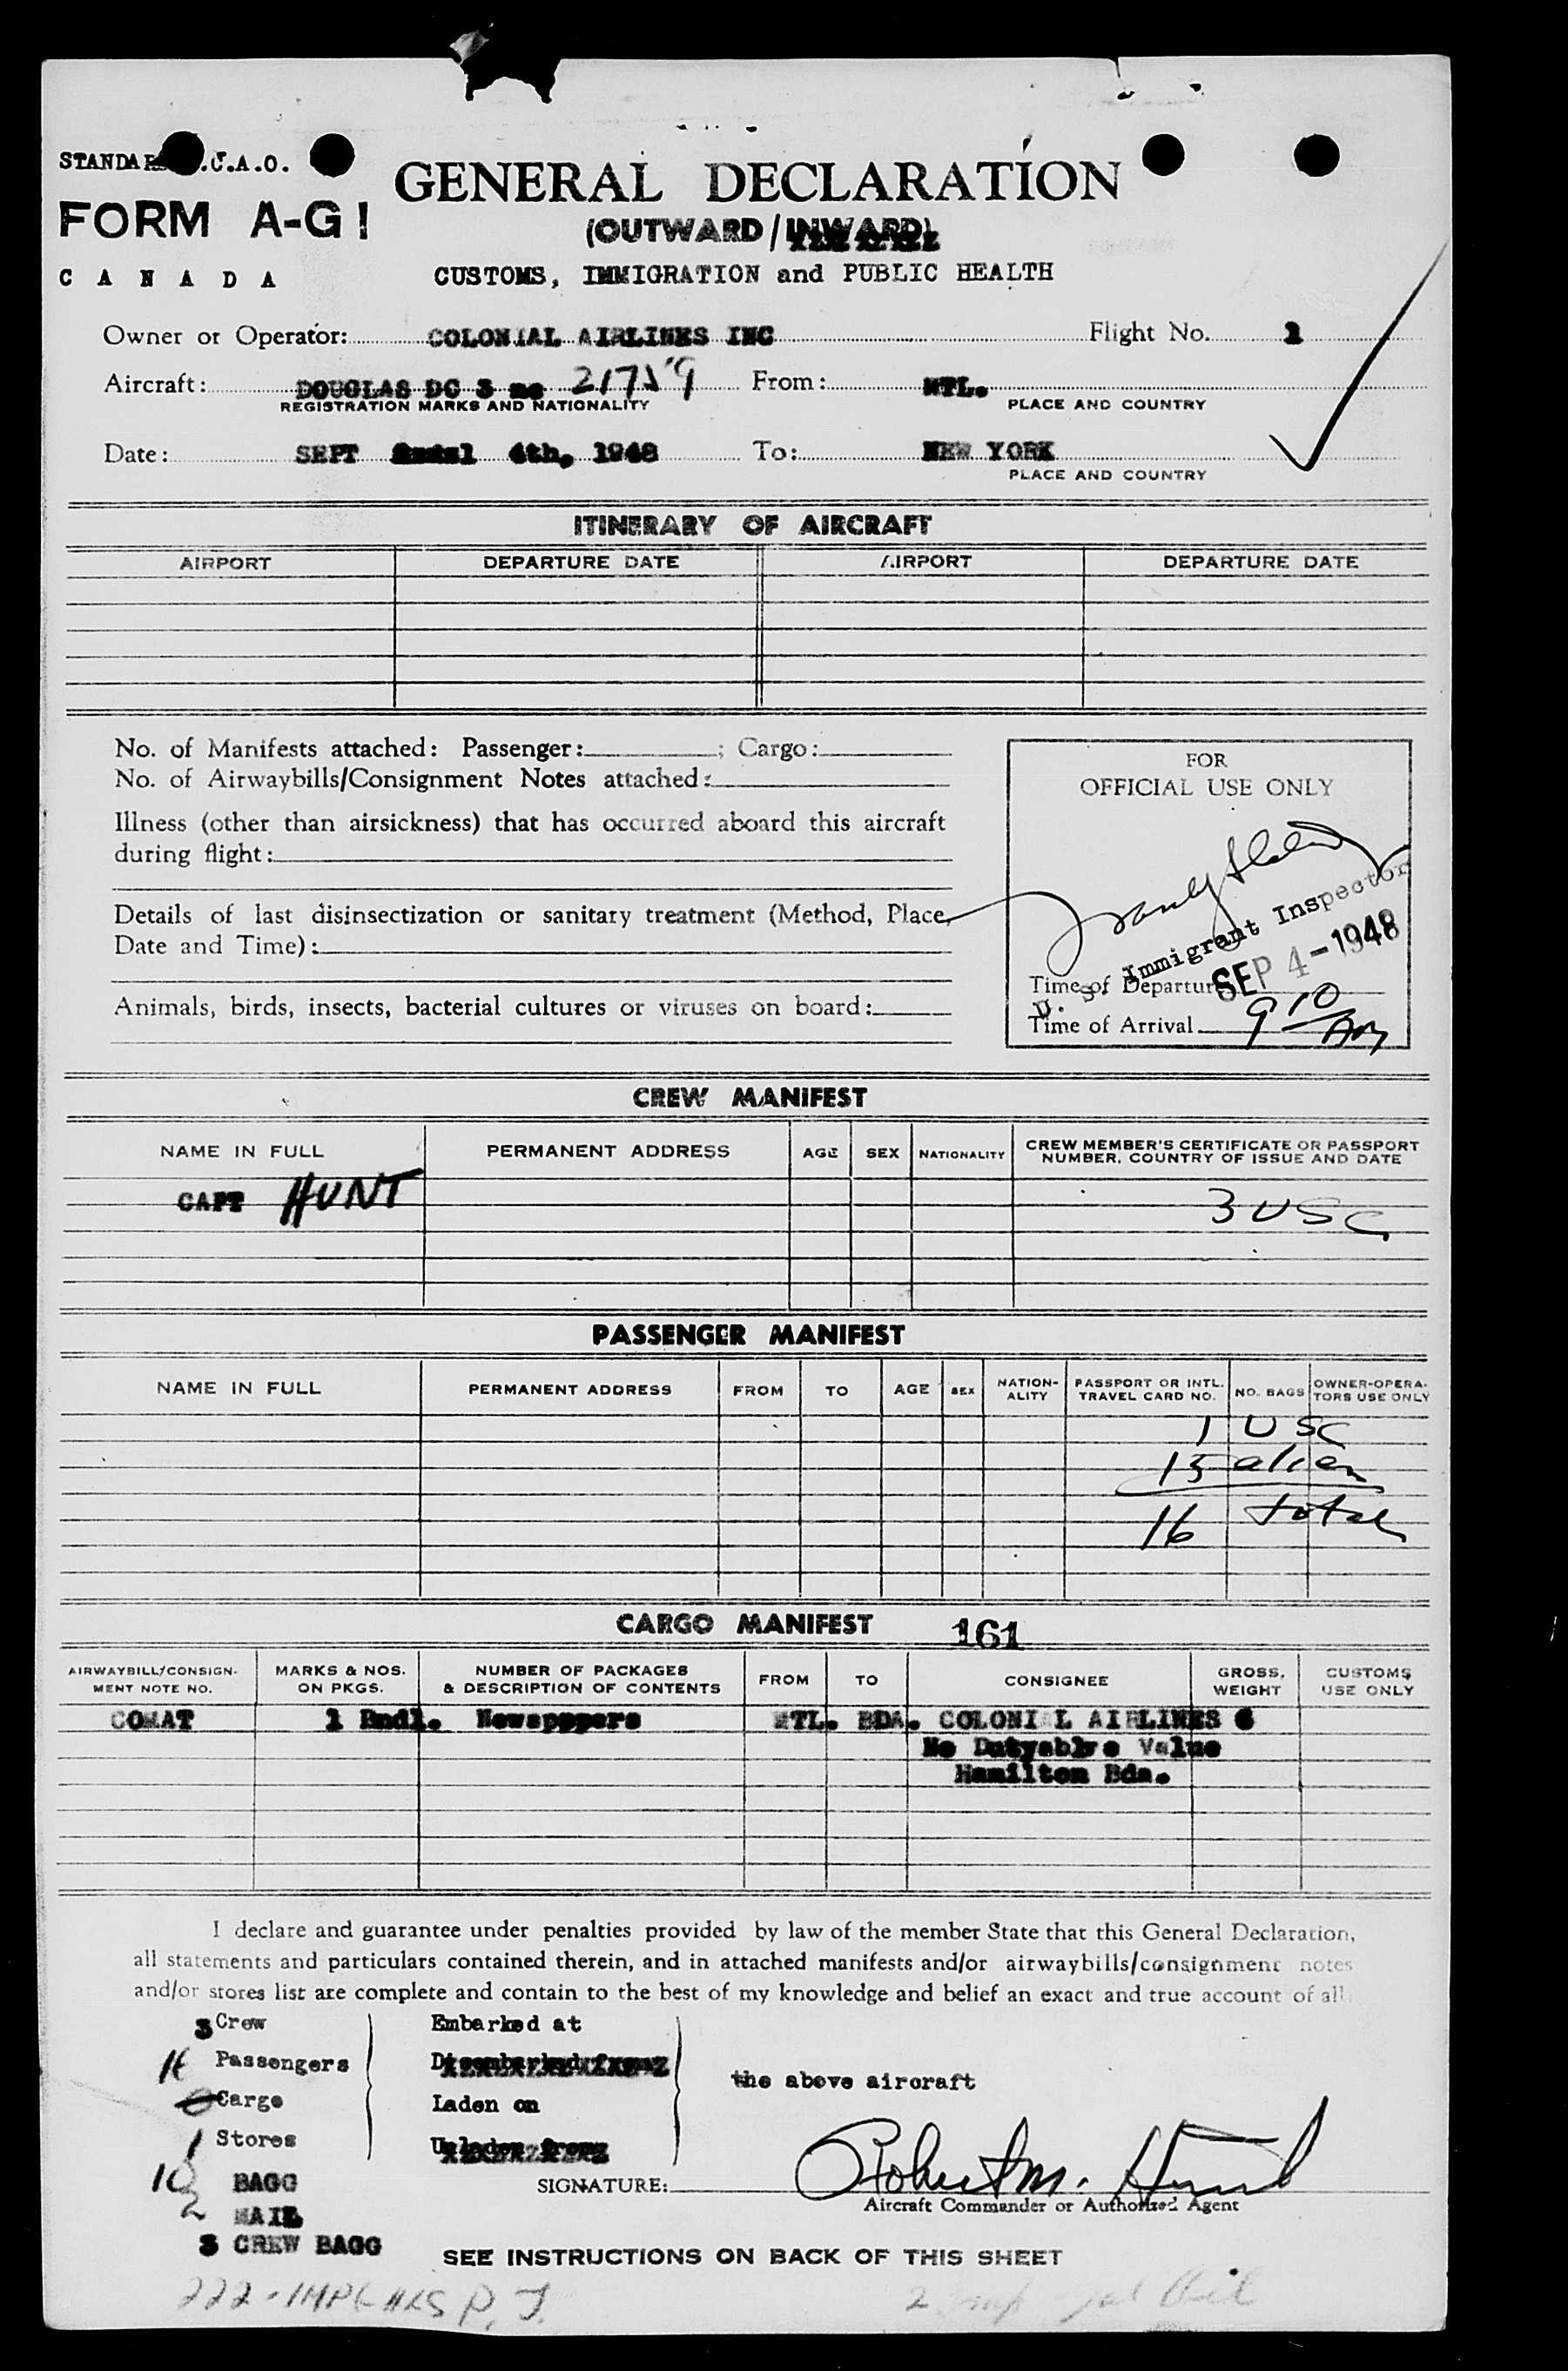 STANDAR .C.A.O.
FORM A-G1
CANADA
GENERAL DECLARATION
(OUTWARD/INWARD)
CUSTOMS, IMMIGRATION and PUBLIC HEALTH
Owner or Operator: COLONIAL AIRLINES INC Flight No. 1
Aircraft: DOUGLAS DC 3 nc 21759 From: MTL.
REGISTRATION MARKS AND NATIONALITY PLACE AND COUNTRY
Date: SEPT 4th, 1948 To: NEW YORK
PLACE AND COUNTRY
ITINERARY OF AIRCRAFT
AIRPORT DEPARTURE DATE AIRPORT DEPARTURE DATE
No. of Manifests attached: Passenger: ; Cargo:
No. of Airwaybills/Consignment Notes attached:
Illness (other than airsickness) that has occurred aboard this aircraft
during flight:
Details of last disinsectization or sanitary treatment (Method, Place,
Date and Time):
Animals, birds, insects, bacterial cultures or viruses on board:
FOR
OFFICIAL USE ONLY
U. S. Immigrant Inspector
SEP 4-1948
Time of Departure
Time of Arrival 9 10 AM
CREW MANIFEST
NAME IN FULL PERMANENT ADDRESS AGE SEX NATIONALITY CREW MEMBER'S CERTIFICATE OR PASSPORT
NUMBER, COUNTRY OF ISSUE AND DATE
CAPT HUNT 3 USC
PASSENGER MANIFEST
NAME IN FULL PERMANENT ADDRESS FROM TO AGE SEX NATION-
ALITY PASSPORT OR INTL.
TRAVEL CARD NO. NO. BAGS OWNER-OPERA-
TORS USE ONLY
1 USC
15 alien
16 total
CARGO MANIFEST 161
AIRWAYBILL/CONSIGN-
MENT NOTE NO. MARKS & NOS.
ON PKGS. NUMBER OF PACKAGES
& DESCRIPTION OF CONTENTS FROM TO CONSIGNEE GROSS.
WEIGHT CUSTOMS
USE ONLY
COMAT 1 Bndl. Newspppers MTL. BDA. COLONIAL AIRLINES 6
No Dutyable Value
Hamilton Bda.
I declare and guarantee under penalties provided by law of the member State that this General Declaration,
all statements and particulars contained therein, and in attached manifests and/or airwaybills/consignment notes
and/or stores list are complete and contain to the best of my knowledge and belief an exact and true account of all
3 Crew Embarked at
16 Passengers Disembarked from
the above aircraft
0 Cargo Laden on
1 Stores Unladen from
10 BAGG
SIGNATURE: Robert M. Hunt
Aircraft Commander or Authorized Agent
2 MAIL
3 CREW BAGG
SEE INSTRUCTIONS ON BACK OF THIS SHEET